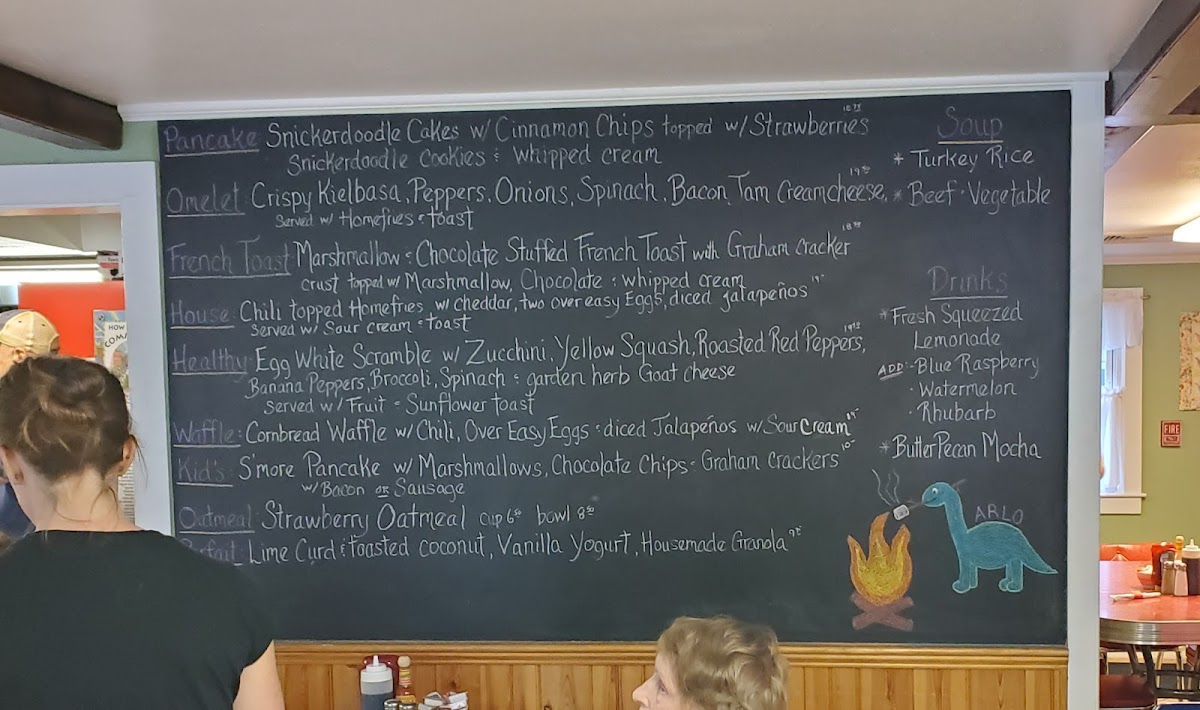 Pancake Snickerdoodle Cakes w/ Cinnamon Chips topped w/ Strawberries
Snickerdoodle Cookies & Whipped cream
Omelet: Crispy Kielbasa, Peppers, Onions, Spinach, Bacon Jam Creamcheese,
Served w/ Homefries & toast
French Toast Marshmallow & Chocolate Stuffed French Toast with Graham Cracker
Crust topped w/ Marshmallow, Chocolate & whipped cream
House: Chili topped Homefries w/ cheddar, two over easy Eggs, diced jalapeños
Served w/ Sour cream & toast
Healthy: Egg White Scramble w/ Zucchini, Yellow Squash, Roasted Red Peppers,
Banana Peppers, Broccoli, Spinach & garden herb Goat cheese
Served w/ Fruit & Sunflower toast
Waffle: Cornbread Waffle w/ Chili, Over Easy Eggs & diced Jalapeños w/ Sour Cream
Kid's: S'more Pancake w/ Marshmallows, Chocolate Chips & Graham Crackers 10-
w/ Bacon or Sausage
Oatmeal: Strawberry Oatmeal cup 6.50 bowl 8.50
Parfait: Lime Curd & toasted coconut, Vanilla Yogurt, Housemade Granola
Soup
* Turkey Rice
* Beef · Vegetable
Drinks
* Fresh Squeezed
Lemonade
ADD: · Blue Raspberry
· Watermelon
· Rhubarb
* Butter Pecan Mocha
ARLO
HOW
COM
FIRE